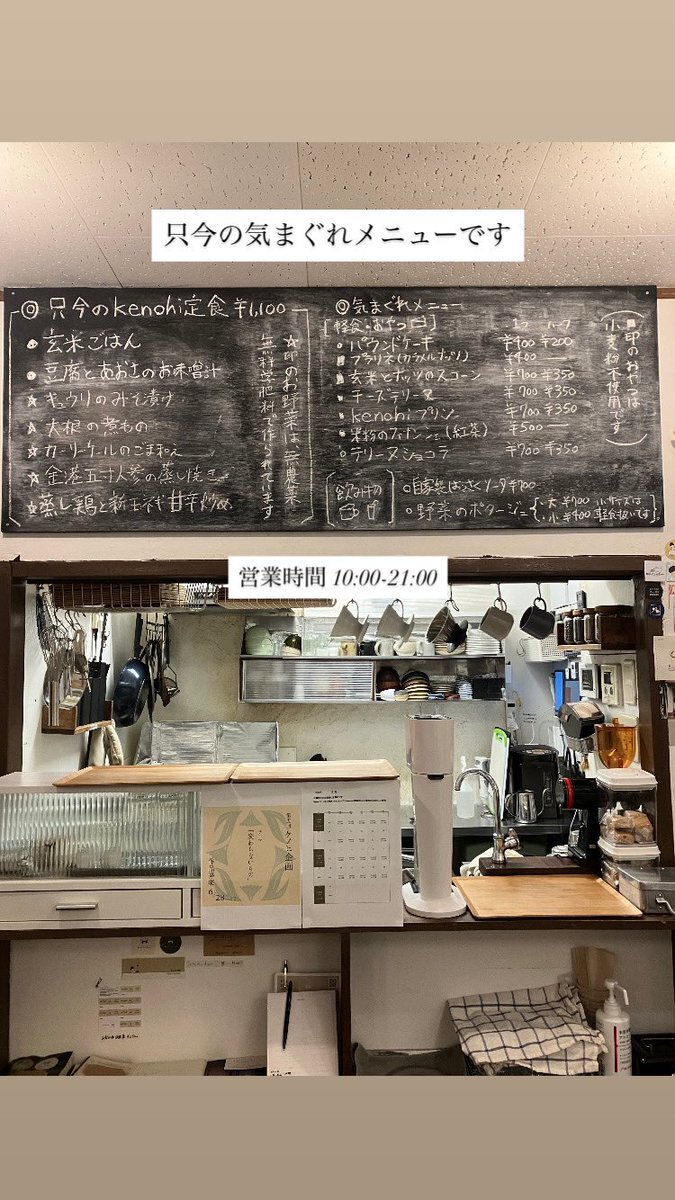 只今の気まぐれメニューです
◎ 只今のkenohi定食 ¥1,100
● 玄米ごはん
● 豆腐とあおさのお味噌汁
☆ キュウリのみそ漬け
☆ 大根の煮もの
☆ カーリーケールのごま和え
☆ 金港五寸人参の蒸し焼き
☆ 蒸し鶏と新玉ネギ甘辛炒め
☆印のお野菜は、無農薬
無科学肥料で作られてます
◎気まぐれメニュー
[軽食・おやつ]
1つ ハーフ
パウンドケーキ ¥400 ¥200
プラリネ ¥400
玄米とナッツのスコーン ¥700 ¥350
チーズテリーヌ ¥700 ¥350
kenohiプリン ¥700 ¥350
米粉のフィナンシェ(紅茶) ¥500
テリーヌショコラ ¥700 ¥350
■印のおやつは
小麦粉不使用です
飲みもの
自家製はっさくソーダ ¥700
野菜のポタージュ
・大 ¥700 小サイズは
・小 ¥400 軽食扱いです
営業時間 10:00-21:00
ケノヒ企画
「変わらないもの」
28